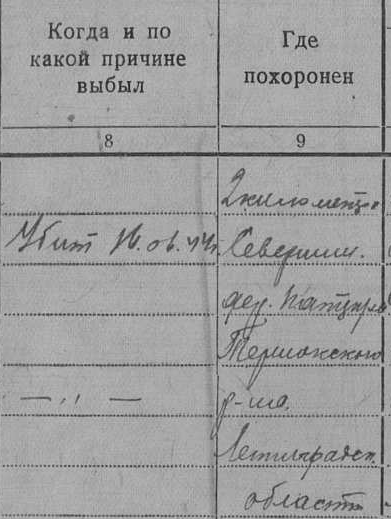 Когда и по
какой причине
выбыл
Где
похоронен
8
9
2 километра
Убит 16.06.44
Севернее
дер.
Териокского
— ,, —
р-на.
Ленинградск.
области